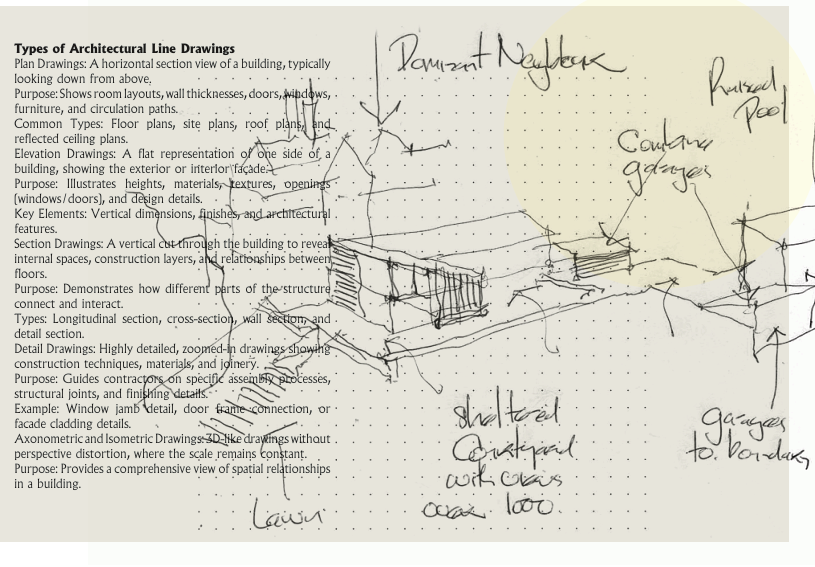 Types of Architectural Line Drawings
Plan Drawings: A horizontal section view of a building, typically
looking down from above,
Purpose: Shows room layouts, wall thicknesses, doors, windows,
furniture, and circulation paths.
Common Types: Floor plans, site plans, roof plans, and
reflected ceiling plans.
Elevation Drawings: A flat representation of one side of a
building, showing the exterior or interior façade.
Purpose: Illustrates heights, materials, textures, openings
(windows/doors), and design details.
Key Elements: Vertical dimensions, finishes, and architectural
features.
Section Drawings: A vertical cut through the building to reveal
internal spaces, construction layers, and relationships between
floors.
Purpose: Demonstrates how different parts of the structure
connect and interact.
Types: Longitudinal section, cross-section, wall section, and
detail section.
Detail Drawings: Highly detailed, zoomed-in drawings showing
construction techniques, materials, and joinery.
Purpose: Guides contractors on specific assembly processes,
structural joints, and finishing details.
Example: Window jamb detail, door frame connection, or
facade cladding details.
Axonometric and Isometric Drawings: 3D-like drawings without
perspective distortion, where the scale remains constant.
Purpose: Provides a comprehensive view of spatial relationships
in a building.
Dominant
Raised
Pool
Combine
garages
sheltered
Courtyard
with views
over
garages
to boundary
Lawn